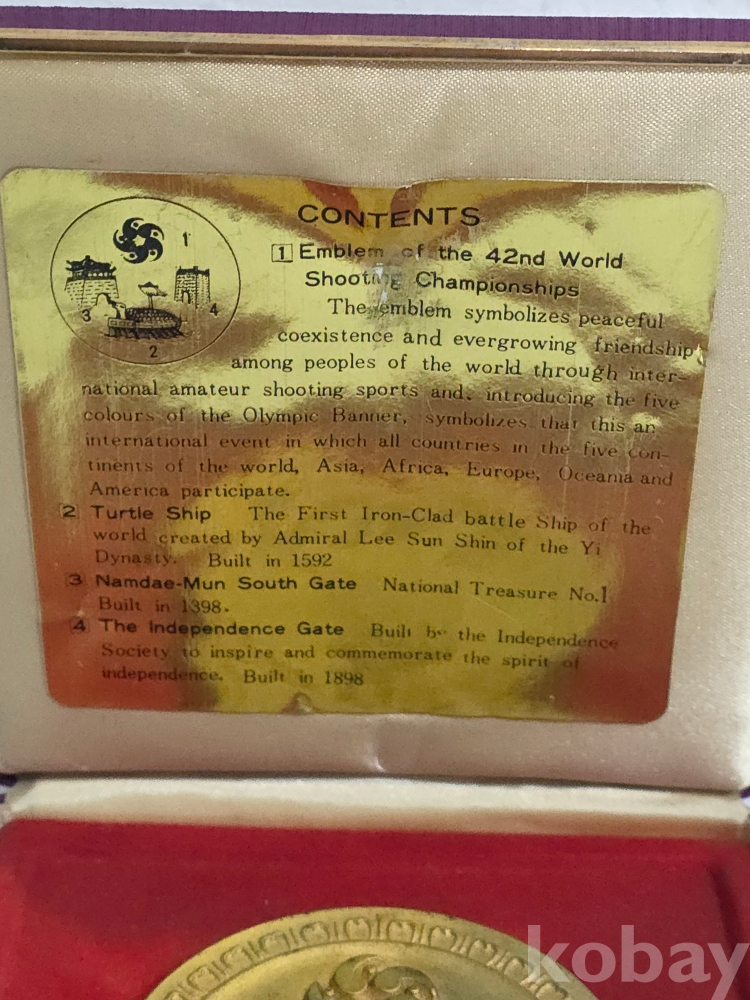 CONTENTS
1 Emblem of the 42nd World
Shooting Championships
The emblem symbolizes peaceful
coexistence and evergrowing friendship
among peoples of the world through inter-
national amateur shooting sports and, introducing the five
colours of the Olympic Banner, symbolizes that this an
international event in which all countries in the five con-
tinents of the world, Asia, Africa, Europe, Oceania and
America participate.
2 Turtle Ship The First Iron-Clad battle Ship of the
world created by Admiral Lee Sun Shin of the Yi
Dynasty. Built in 1592
3 Namdae-Mun South Gate National Treasure No.1
Built in 1398.
4 The Independence Gate Built by the Independence
Society to inspire and commemorate the spirit of
independence. Built in 1898
1
3
4
2
kobay